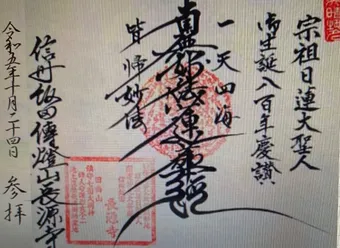 宗祖日蓮大聖人
御生誕八百年慶讃
一天四海
南無妙法蓮華経
皆帰妙法
信州飯田傳燈山長源寺
令和五年十月二十四日 参拝
長源寺